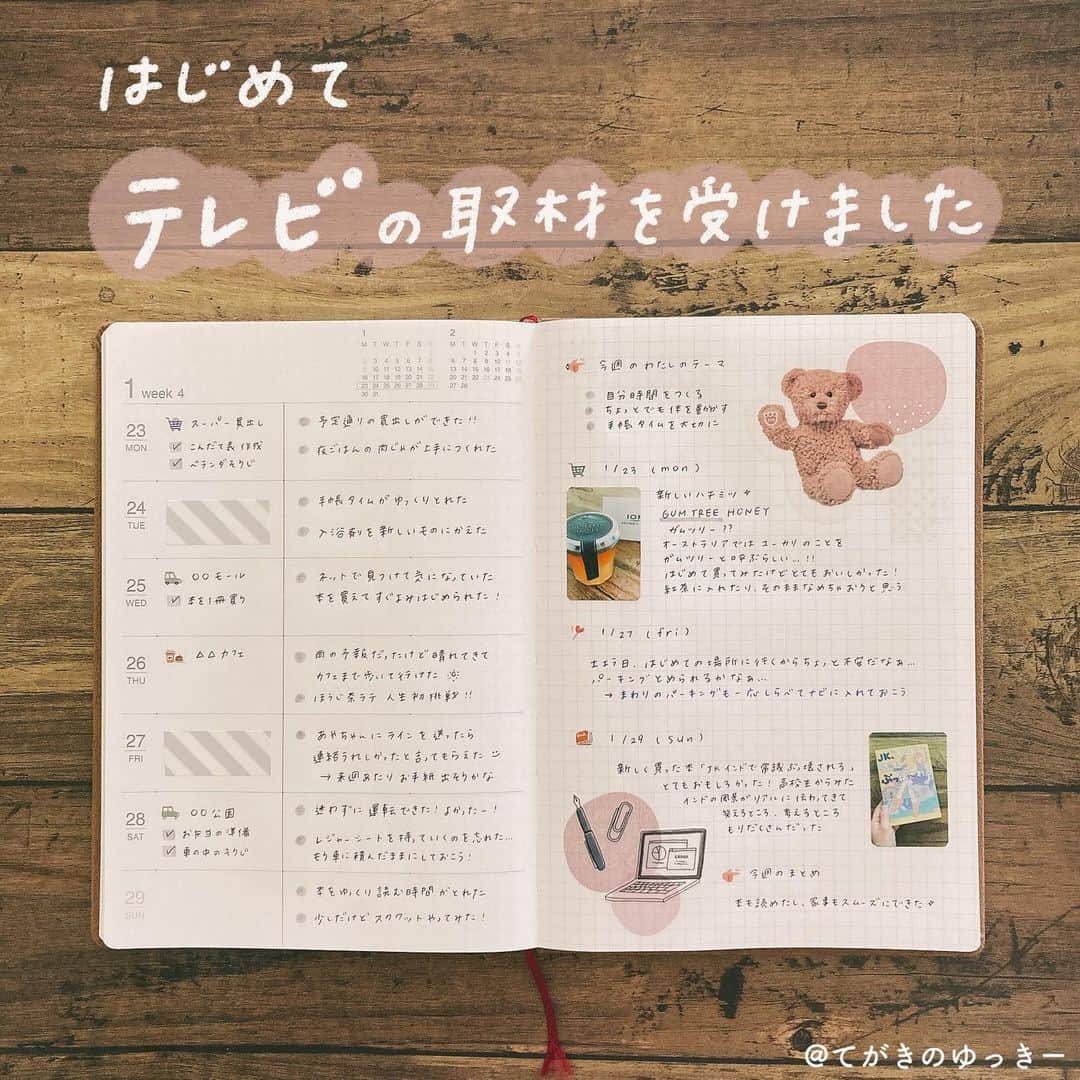 はじめて
テレビの取材を受けました
1 2
M T W T F S S M T W T F S S
1 1 2 3 4 5
2 3 4 5 6 7 8 6 7 8 9 10 11 12
9 10 11 12 13 14 15 13 14 15 16 17 18 19
16 17 18 19 20 21 22 20 21 22 23 24 25 26
23 24 25 26 27 28 29 27 28
30 31
1 week 4
23 MON
スーパー買出し
こんだて表作成
ベランダそうじ
予定通りの買出しができた!!
夜ごはんの肉じゃが上手につくれた
24 TUE
手帳タイムがゆっくりとれた
入浴剤を新しいものにかえた
25 WED
〇〇モール
本を1冊買う
ネットで見つけて気になっていた
本を買えてすぐよみはじめられた!
26 THU
△△カフェ
雨の予報だったけど晴れてきて
カフェまで歩いて行けた
ほうじ茶ラテ 人生初挑戦!!
27 FRI
あやちゃんにラインを送ったら
連絡うれしかったと言ってもらえた
→ 来週あたりお手紙出そうかな
28 SAT
〇〇公園
お弁当の準備
車の中のそうじ
迷わずに運転できた!よかったー!
レジャーシートを持っていくのを忘れた…
もう車に積んだままにしておこう!
29 SUN
本をゆっくり読む時間がとれた
少しだけどスクワットやってみた!
今週のわたしのテーマ
自分時間をつくる
ちょっとでも体を動かす
手帳タイムを大切に
1/23 (mon)
新しいハチミツ
GUM TREE HONEY
ガムツリー??
オーストラリアではユーカリのことを
ガムツリーと呼ぶらしい…!!
はじめて買ってみたけどとてもおいしかった!
紅茶に入れたり、そのままなめちゃおうと思う
1/27 (fri)
土よう日、はじめての場所に行くからちょっと不安だなぁ…
パーキングとめられるかなぁ…
→ まわりのパーキングも一応しらべてナビに入れておこう
1/29 (sun)
新しく買った本「JKインドで常識ぶっ壊される」
とてもおもしろかった!高校生からみた
インドの風景がリアルに伝わってきて
笑えるところ、考えるところ
もりだくさんだった
JK、
ぶっ
今週のまとめ
本も読めたし、家事もスムーズにできた
@てがきのゆっきー